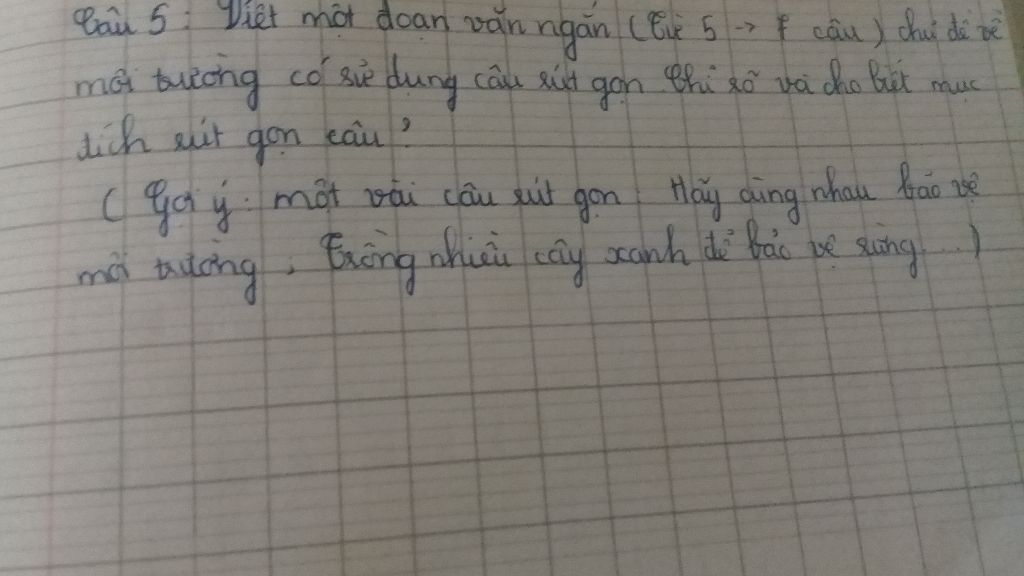 Câu 5: Viết một đoạn văn ngắn (Từ 5 -> 7 câu) chủ đề về
môi trường có sử dụng câu rút gọn chỉ rõ và cho biết mục
đích rút gọn câu?
( Gợi ý: một vài câu rút gọn: Hãy cùng nhau bảo vệ
môi trường, Trồng nhiều cây xanh để bảo vệ rừng...)